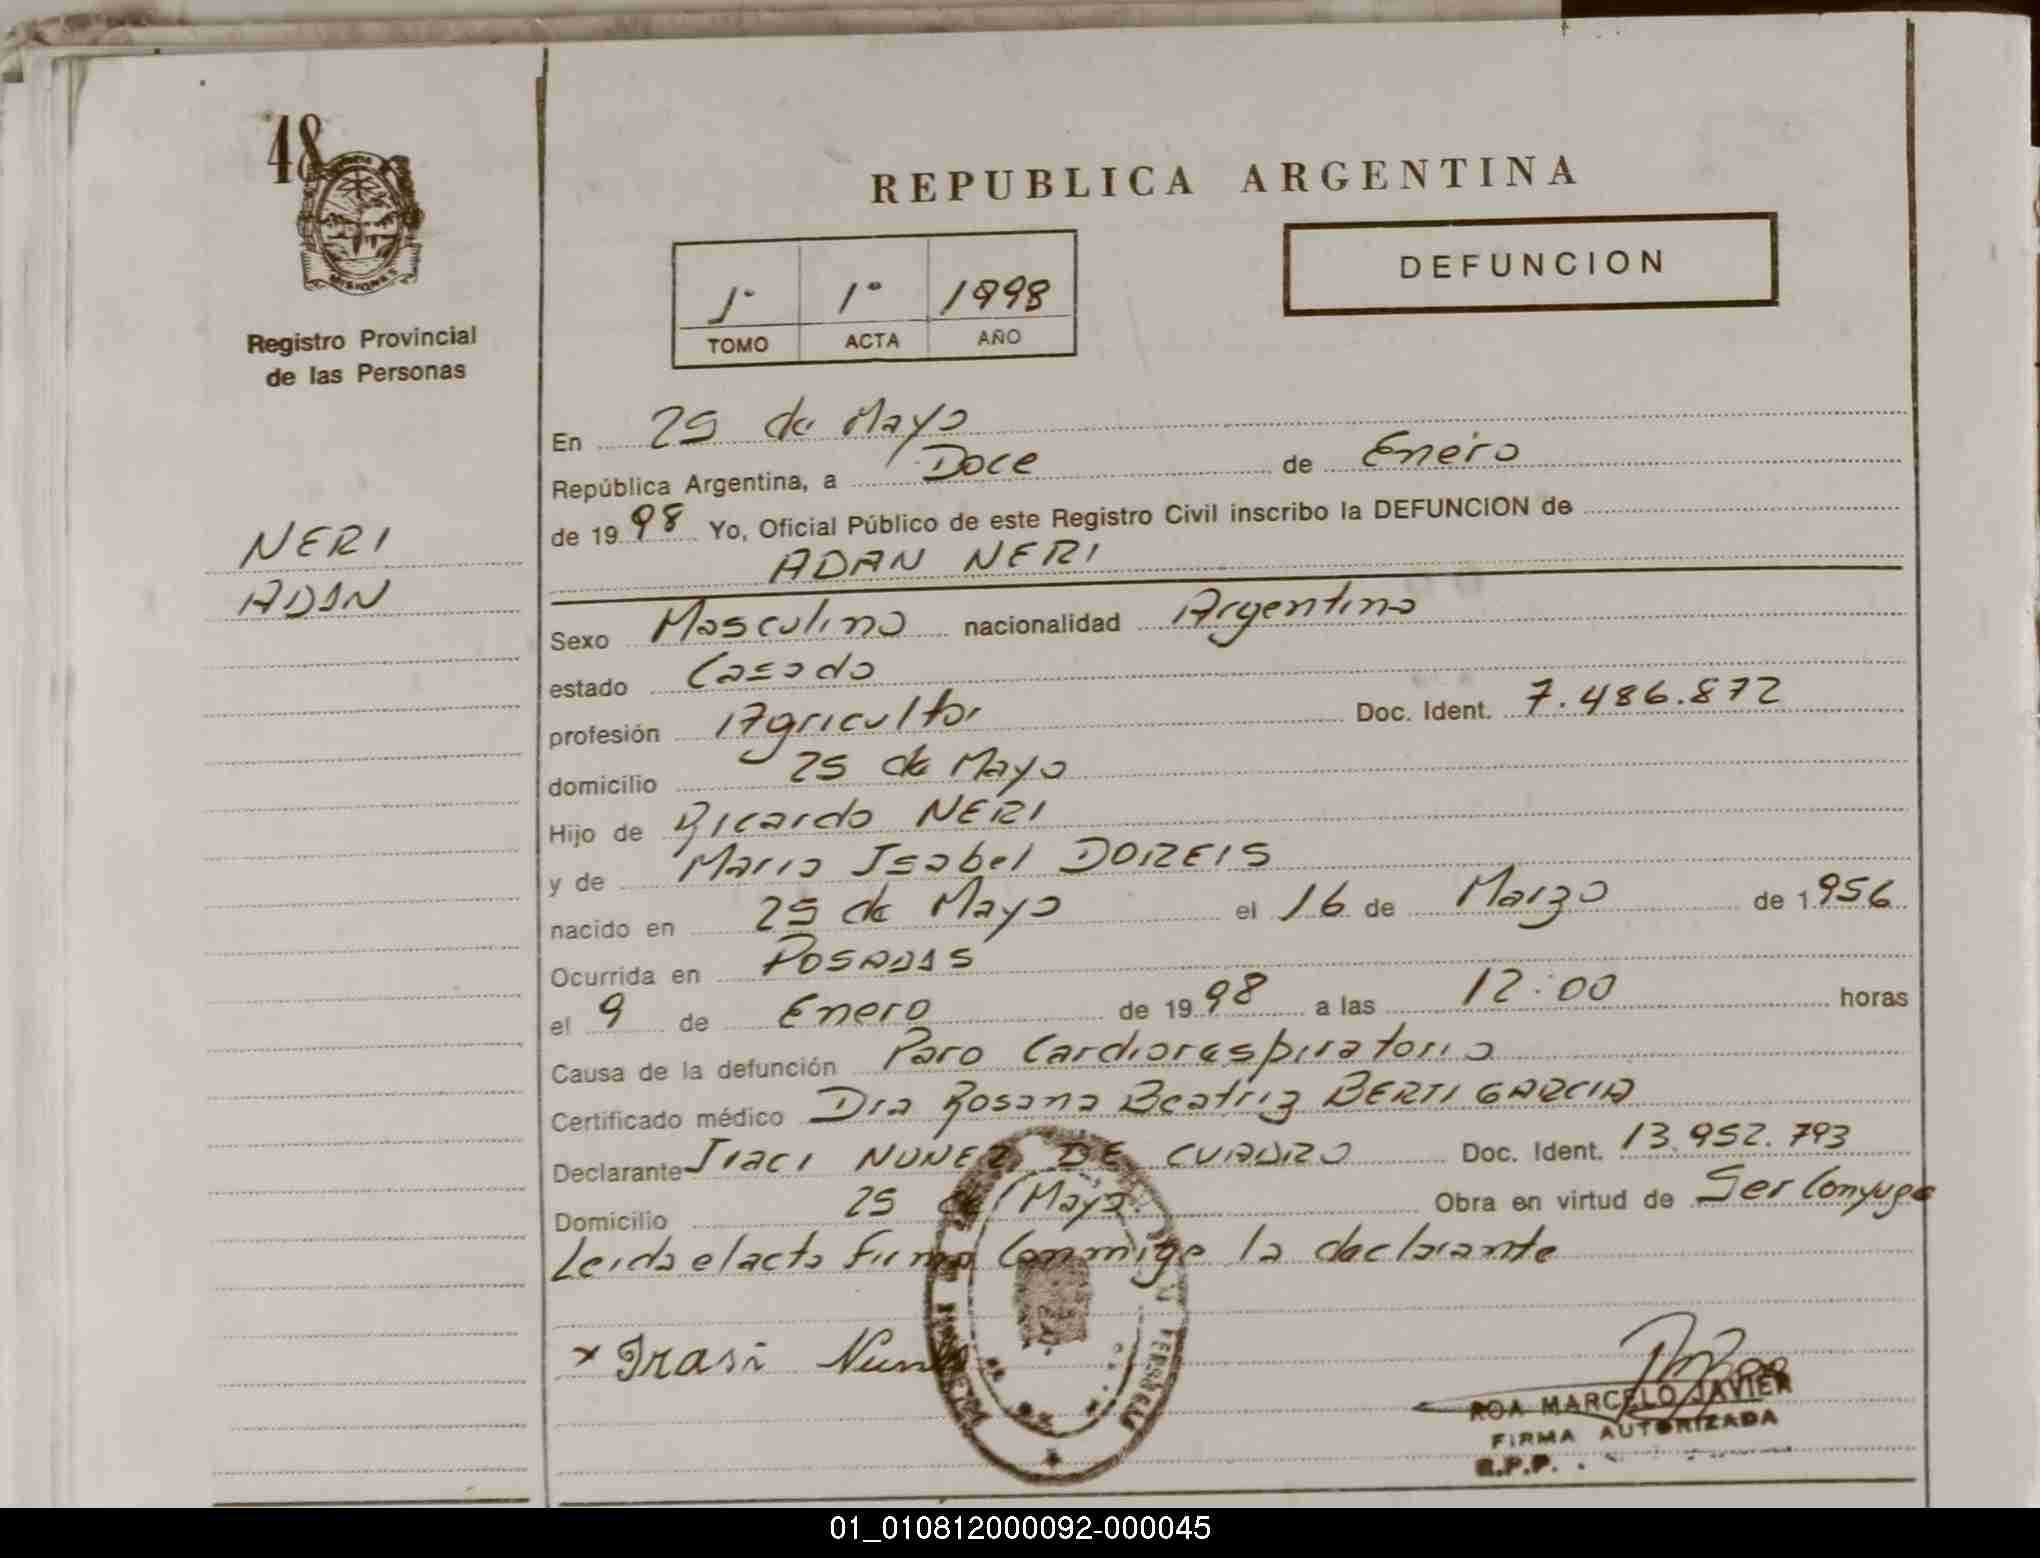 48
MISIONES
Registro Provincial
de las Personas
NERI
ADAN
REPUBLICA ARGENTINA
DEFUNCION
1° 1° 1998
TOMO ACTA AÑO
En 25 de Mayo
República Argentina, a Doce de Enero
de 1998 Yo, Oficial Público de este Registro Civil inscribo la DEFUNCION de
ADAN NERI
Sexo Masculino nacionalidad Argentino
estado Casado
profesión Agricultor Doc. Ident. 7.486.872
domicilio 25 de Mayo
Hijo de Ricardo NERI
y de Maria Isabel DOREIS
nacido en 25 de Mayo el 16 de Marzo de 1956
Ocurrida en POSADAS
el 9 de Enero de 1998 a las 12:00 horas
Causa de la defunción Paro Cardiorespiratorio
Certificado médico Dra Rosana Beatriz BERTI GARCIA
Declarante Iraci NUNEZ DE CUADRO Doc. Ident. 13.952.793
Domicilio 25 de Mayo Obra en virtud de Ser Conyuge
Leida el acta firma conmigo la declarante
x Irasi Nun
ROA MARCELO JAVIER
FIRMA AUTORIZADA
R.P.P.
01_010812000092-000045